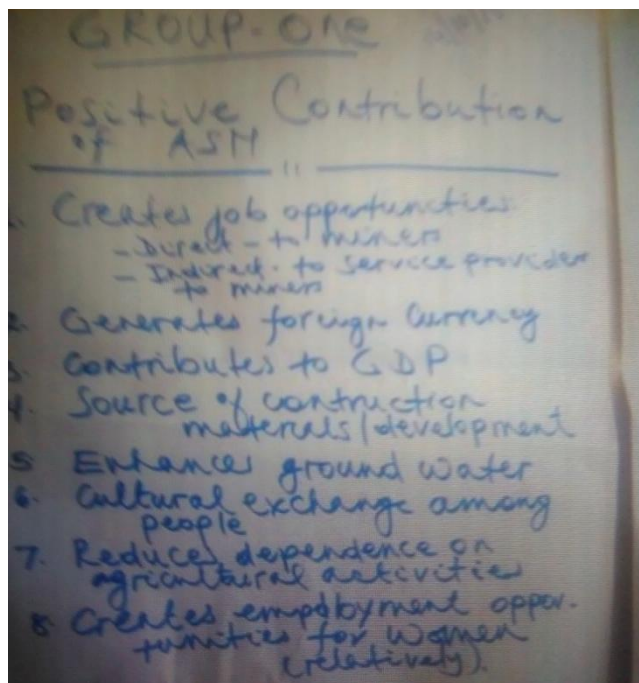 GROUP-One
Positive Contribution
of ASM
1. Creates job opportunities
- Direct - to miners
- Indirect - to service provider
to miners
2. Generates foreign Currency
3. Contributes to GDP
4. Source of contruction
materials/development
5 Enhances ground water
6. Cultural exchange among
people
7. Reduces dependence on
agricultural activities
8 Creates employment oppor-
tunities for women
(relatively).